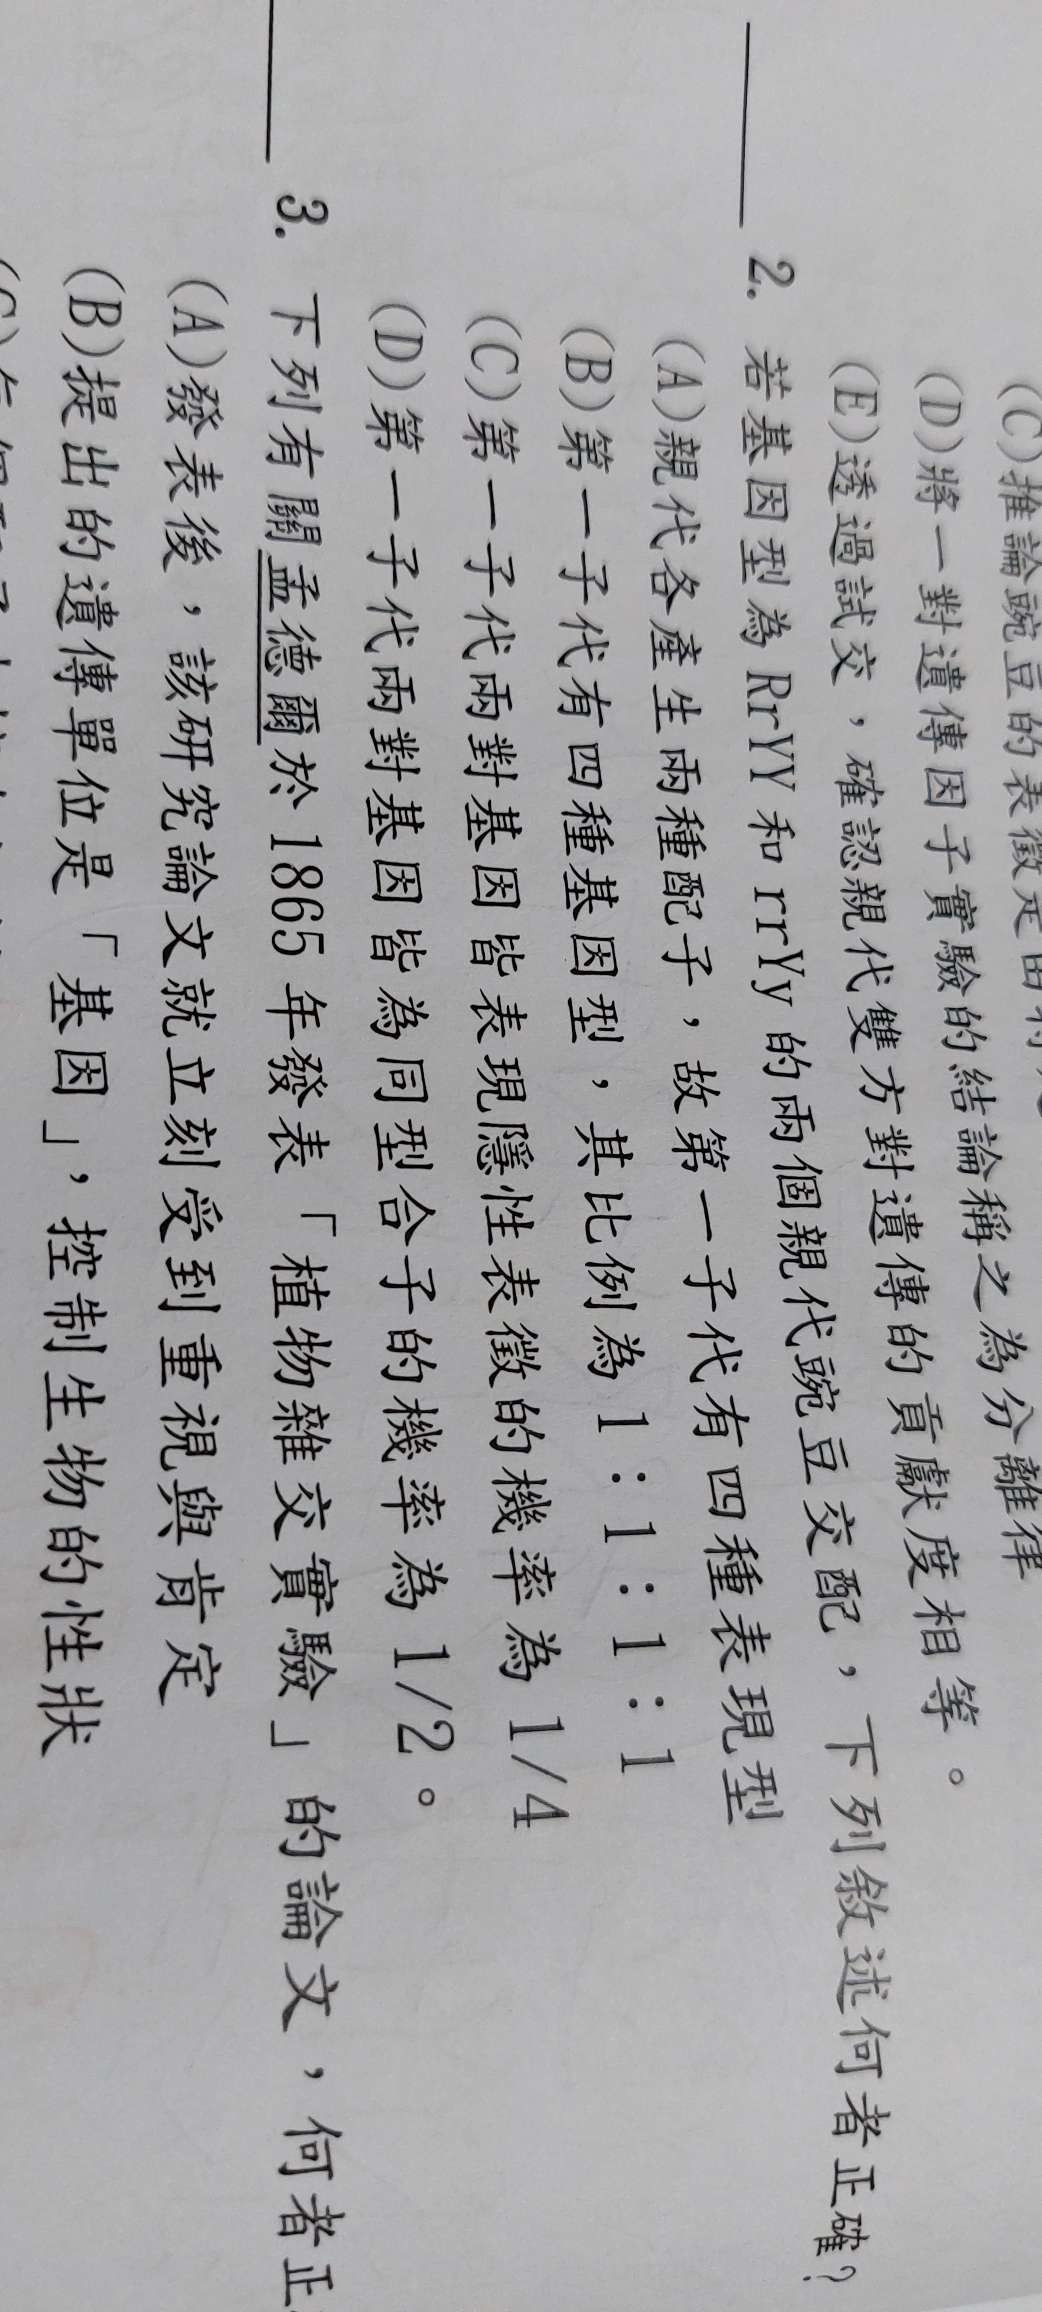 (C)推論豌豆的表徵是由
(D)將一對遺傳因子實驗的結論稱之為分離律
(E)透過試交，確認親代雙方對遺傳的貢獻度相等。
2. 若基因型為 RrYY 和 rrYy 的兩個親代豌豆交配，下列敘述何者正確?
(A)親代各產生兩種配子，故第一子代有四種表現型
(B)第一子代有四種基因型，其比例為 1：1：1：1
(C)第一子代兩對基因皆表現隱性表徵的機率為 1/4
(D)第一子代兩對基因皆為同型合子的機率為 1/2。
3. 下列有關孟德爾於 1865 年發表「植物雜交實驗」的論文，何者正
(A)發表後，該研究論文就立刻受到重視與肯定
(B)提出的遺傳單位是「基因」，控制生物的性狀